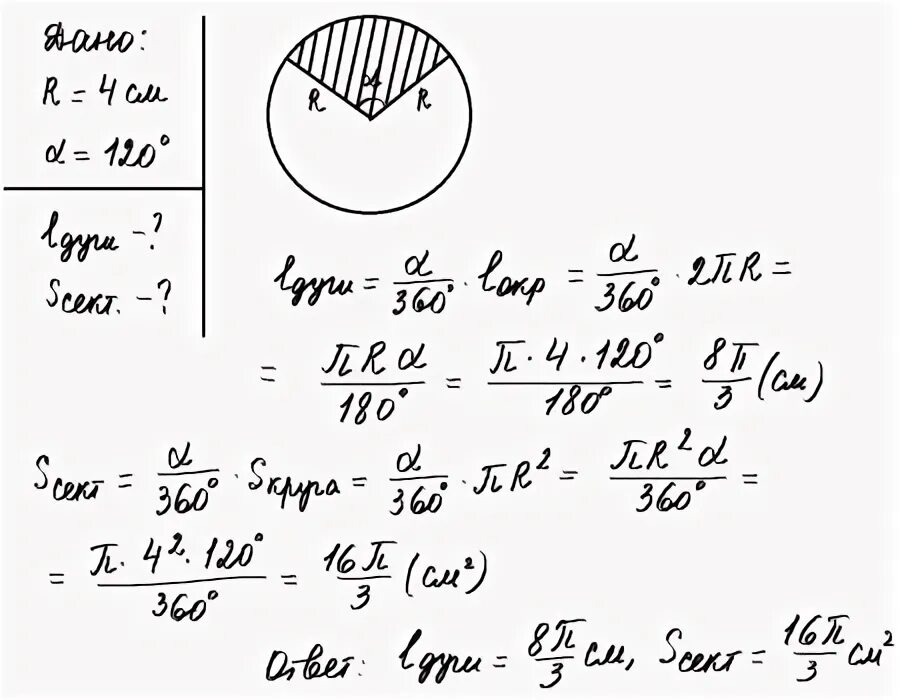 Дано:
R = 4 см
α = 120°
l дуги - ?
S сект. - ?
α
R R
l дуги = α/360° · l окр = α/360° · 2πR =
= πRα/180° = π · 4 · 120°/180° = 8π/3 (см)
S сект = α/360° · S круга = α/360° · πR² = πR²α/360° =
= π · 4² · 120°/360° = 16π/3 (см²)
Ответ: l дуги = 8π/3 см, S сект = 16π/3 см²